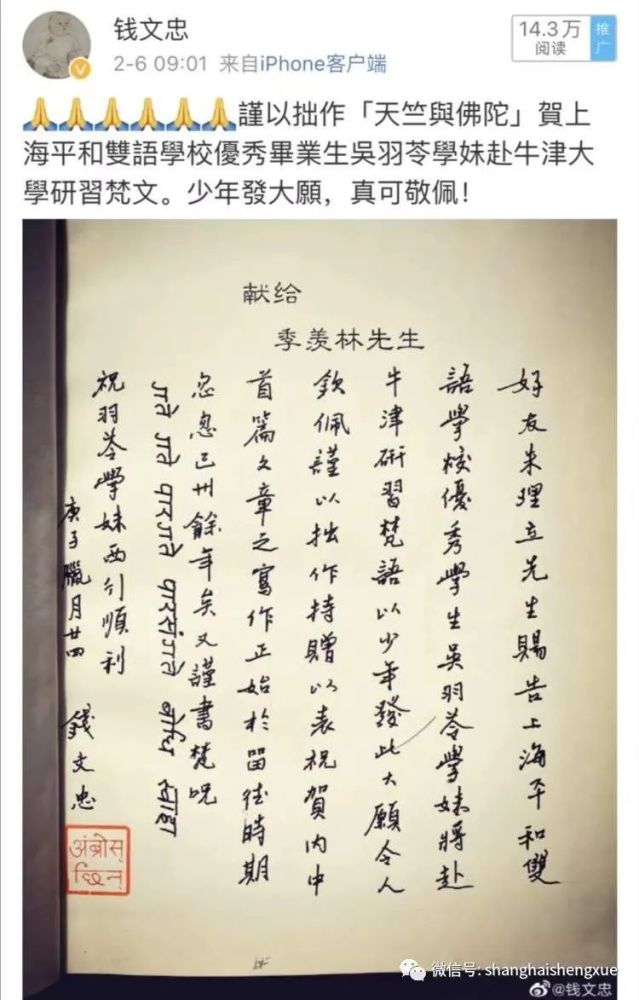 钱文忠
2-6 09:01 来自iPhone客户端
14.3万
阅读
推广
🙏🙏🙏🙏🙏🙏謹以拙作「天竺與佛陀」賀上
海平和雙語學校優秀畢業生吳羽苓學妹赴牛津大
學研習梵文。少年發大願，真可敬佩！
献给
季羡林先生
好友朱理立先生賜告上海平和雙
語學校優秀學生吳羽苓學妹將赴
牛津研習梵語以少年發此大願令人
欽佩謹以拙作持贈以表祝賀內中
首篇文章之寫作正始於留德時期
忽忽已卅餘年矣又謹書梵咒
गते गते पारगते पारसंगते बोधि स्वाहा
祝羽苓學妹西行順利
庚子臘月廿四 錢文忠
अंब्रोस्
छिन्
微信号: shanghaishengxue
@钱文忠